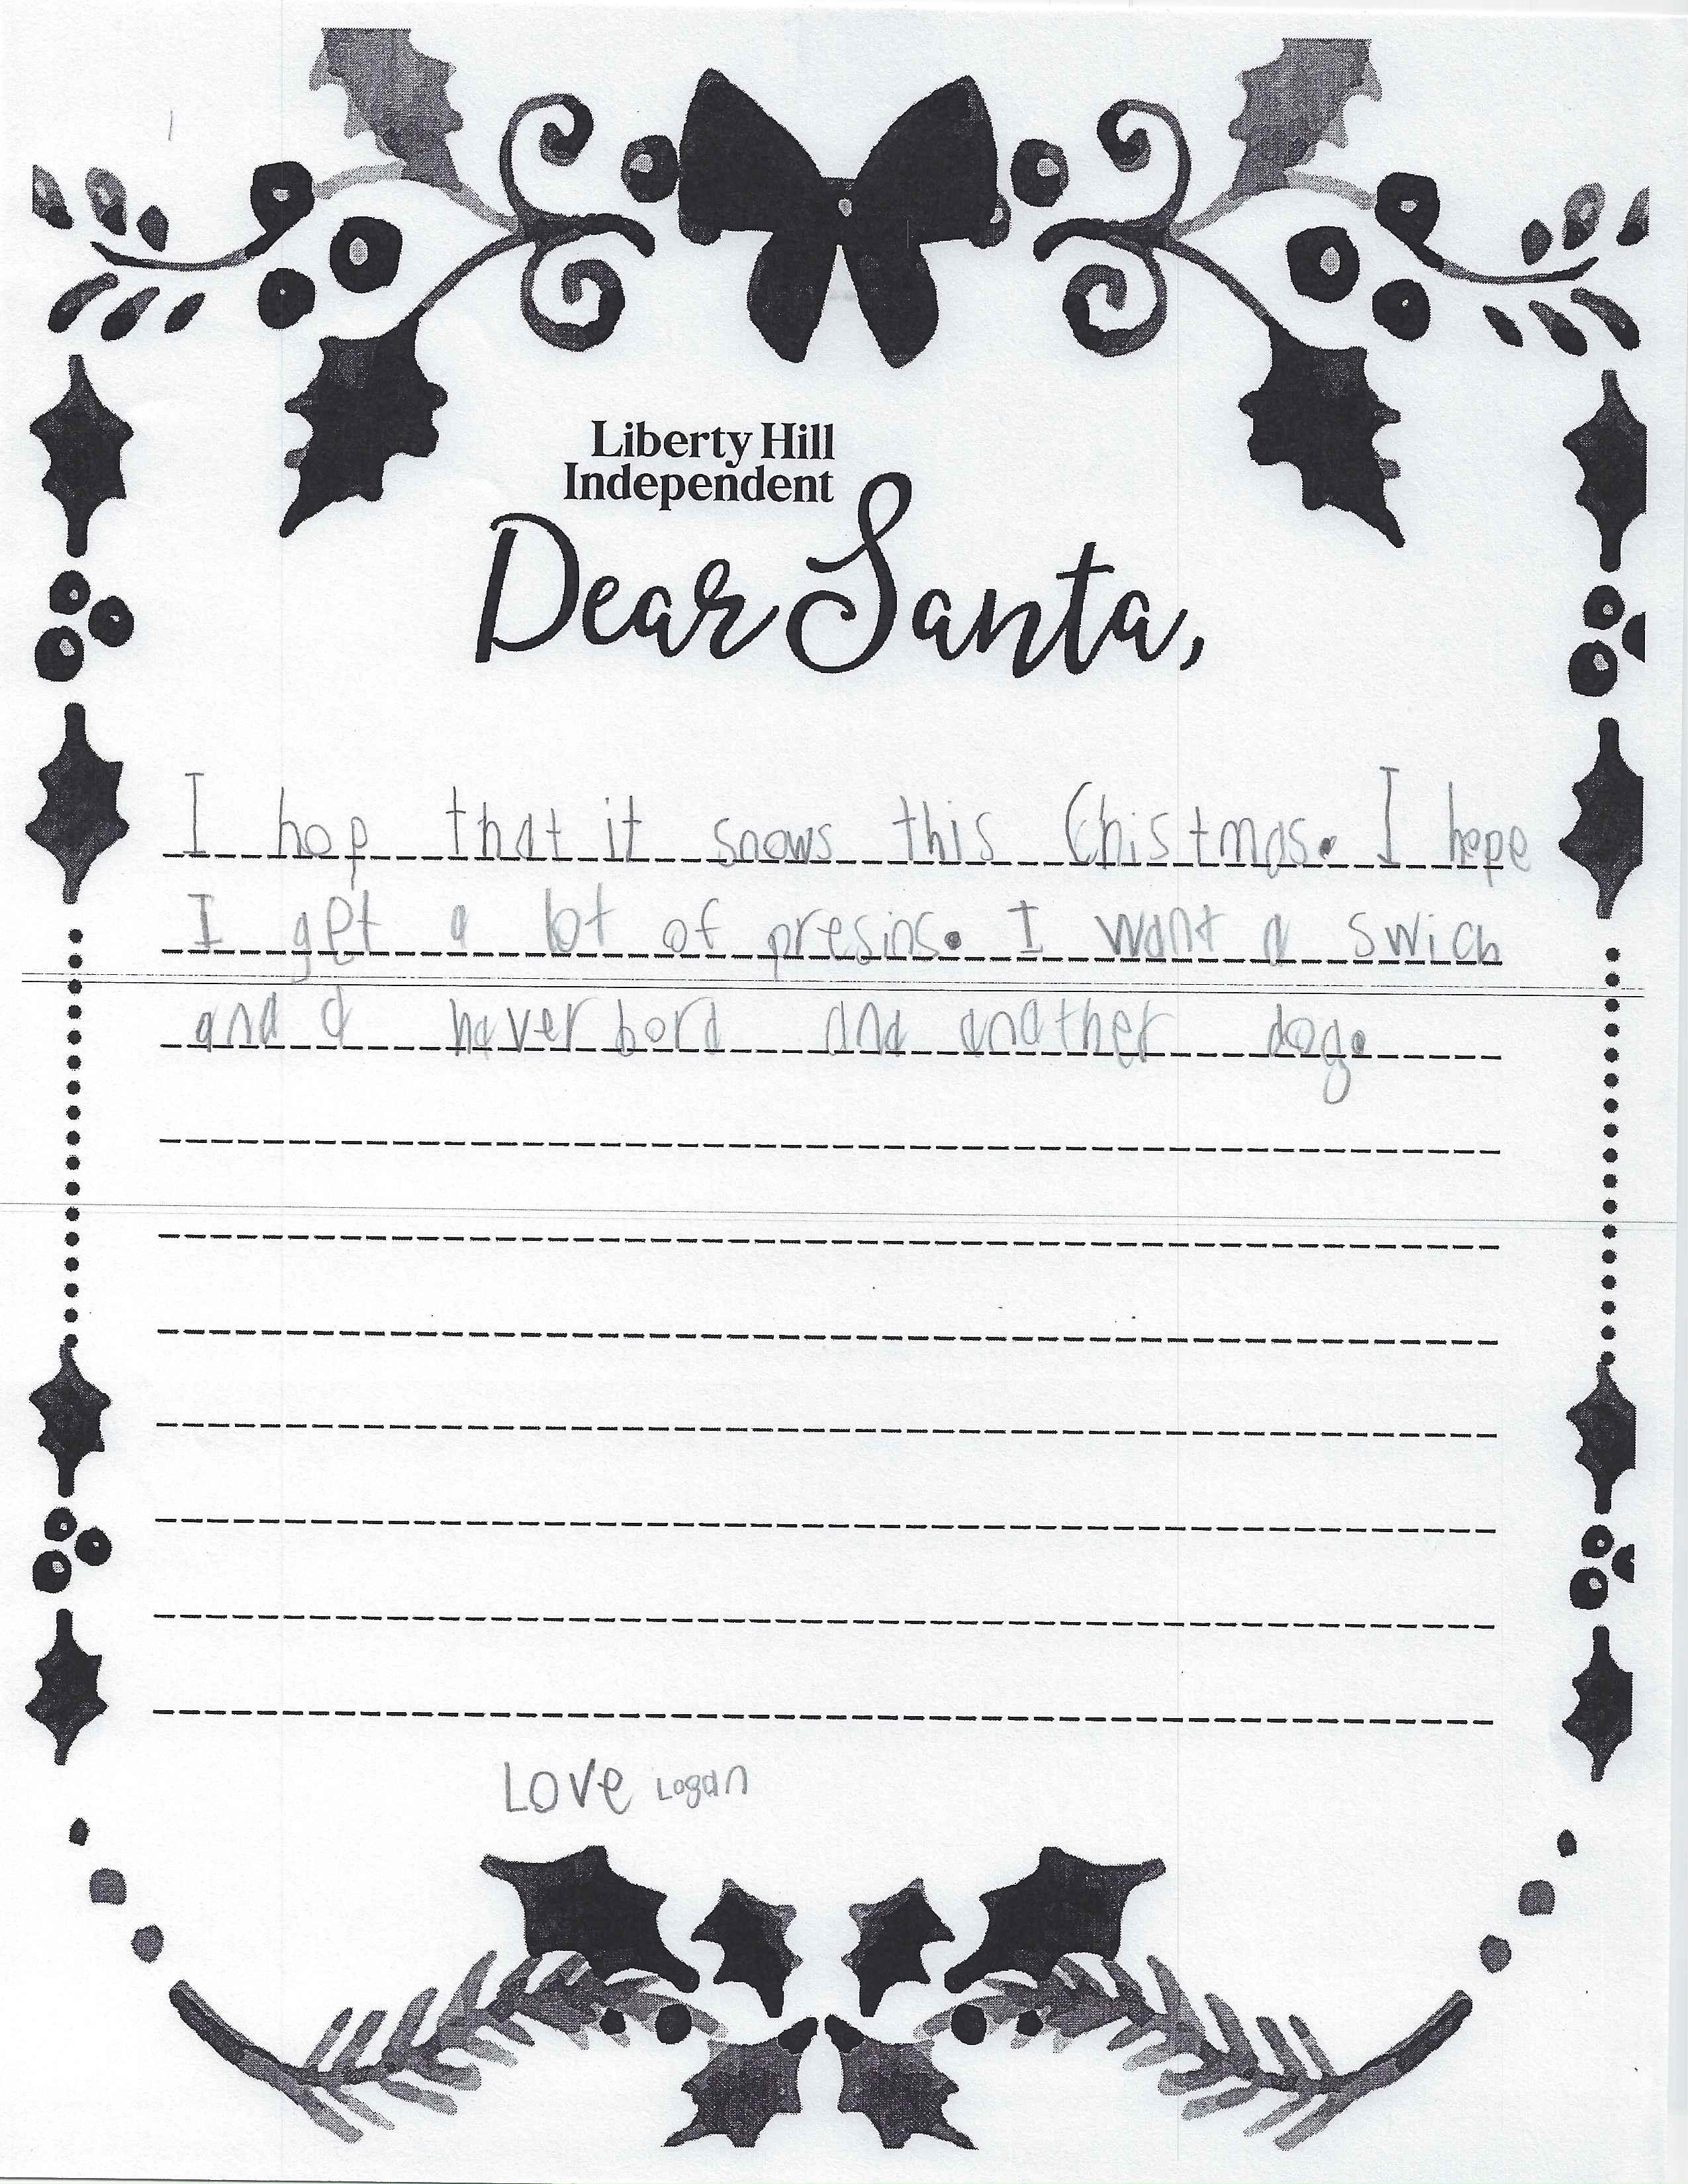 Liberty Hill
Independent
Dear Santa,
I hop that it snows this Chistmas. I hope
I get a lot of presins. I want a swich
and a haver bord and anather dog.
Love Logan